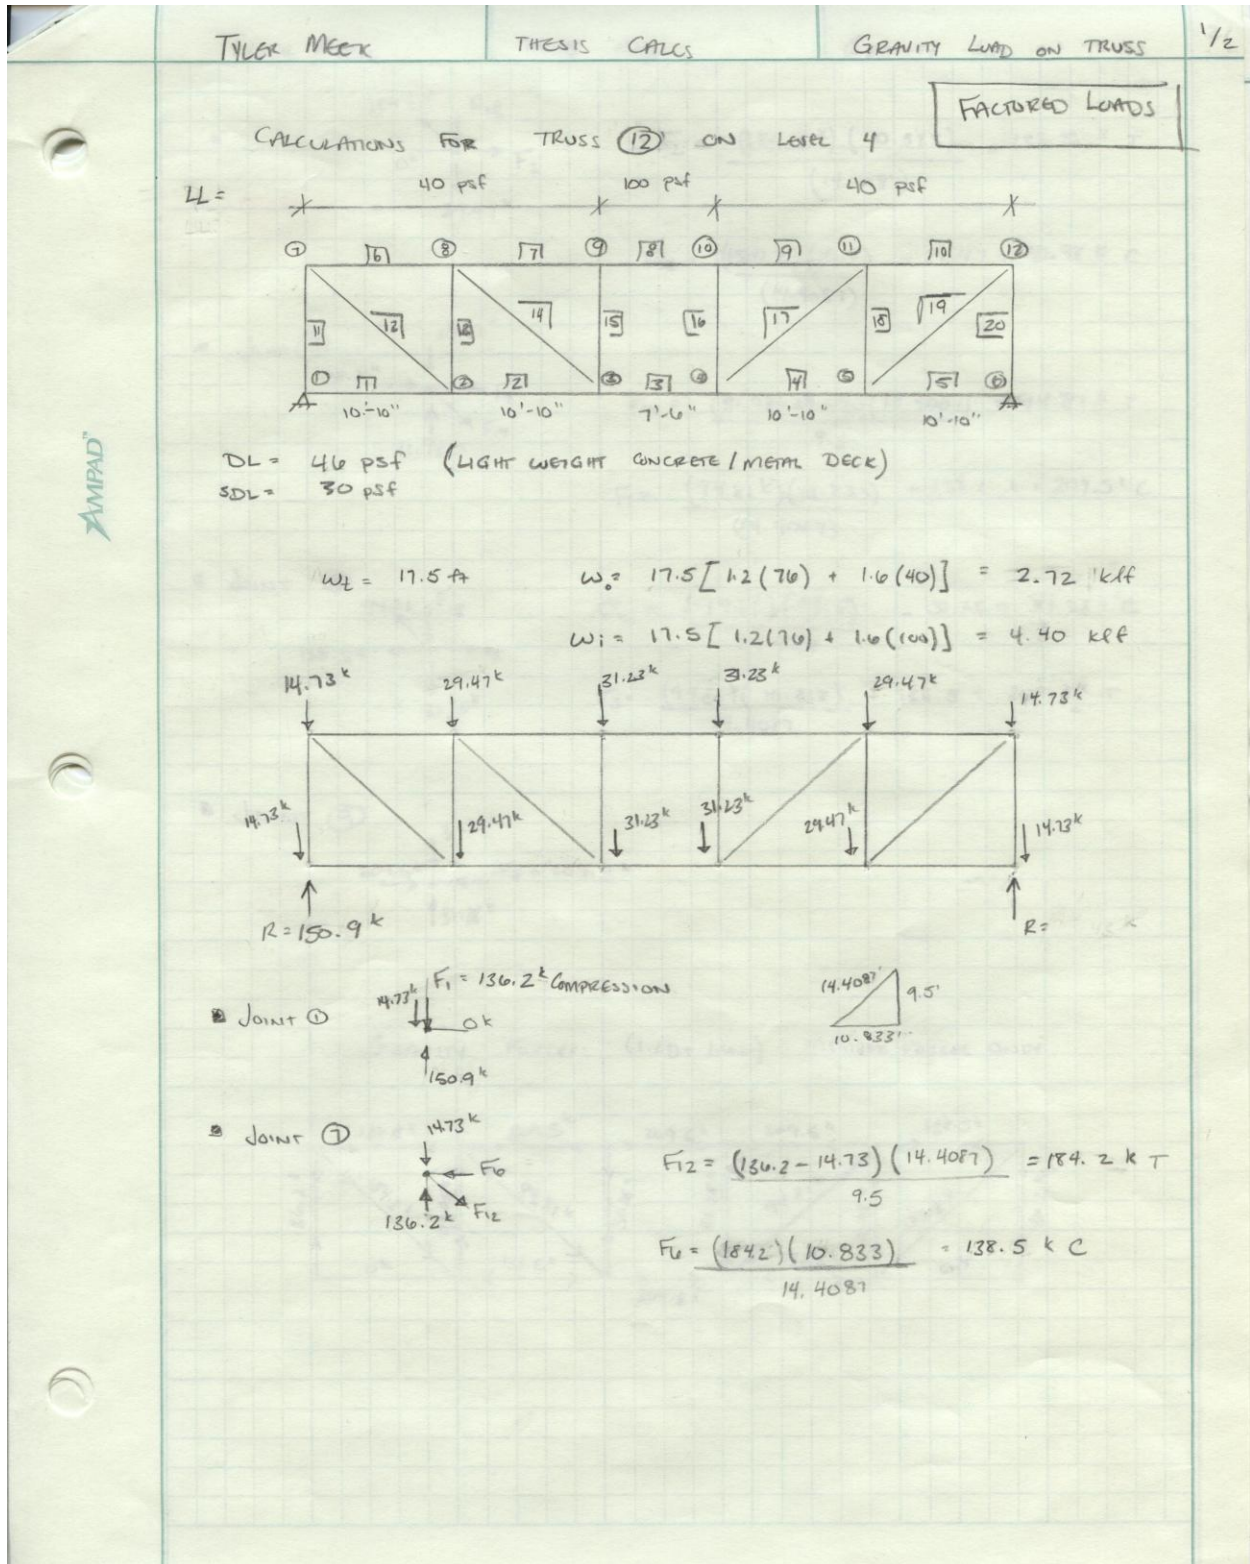 TYLER MEEK THESIS CALCS GRAVITY LOAD ON TRUSS 1/2
FACTORED LOADS
CALCULATIONS FOR TRUSS 12 ON LEVEL 4
LL = 40 psf 100 psf 40 psf
7 6 8 7 9 8 10 9 11 10 12
11 12 13 14 15 16 17 18 19 20
1 1 2 2 3 3 4 4 5 5 6
10'-10" 10'-10" 7'-6" 10'-10" 10'-10"
DL = 46 psf (LIGHT WEIGHT CONCRETE / METAL DECK)
SDL = 30 psf
AMPAD™
wt = 17.5 ft wo = 17.5 [1.2(76) + 1.6(40)] = 2.72 klf
wi = 17.5 [1.2(76) + 1.6(100)] = 4.40 klf
14.73k 29.47k 31.23k 31.23k 29.47k 14.73k
14.73k 29.47k 31.23k 31.23k 29.47k 14.73k
R = 150.9k R =
F1 = 136.2k COMPRESSION
14.73k 14.4087' 9.5'
JOINT 1 0k
10.833'
150.9k
JOINT 7 14.73k
F6 F12 = (136.2 - 14.73)(14.4087) = 184.2 k T
9.5
136.2k F12
F6 = (184.2)(10.833) = 138.5 k C
14.4087